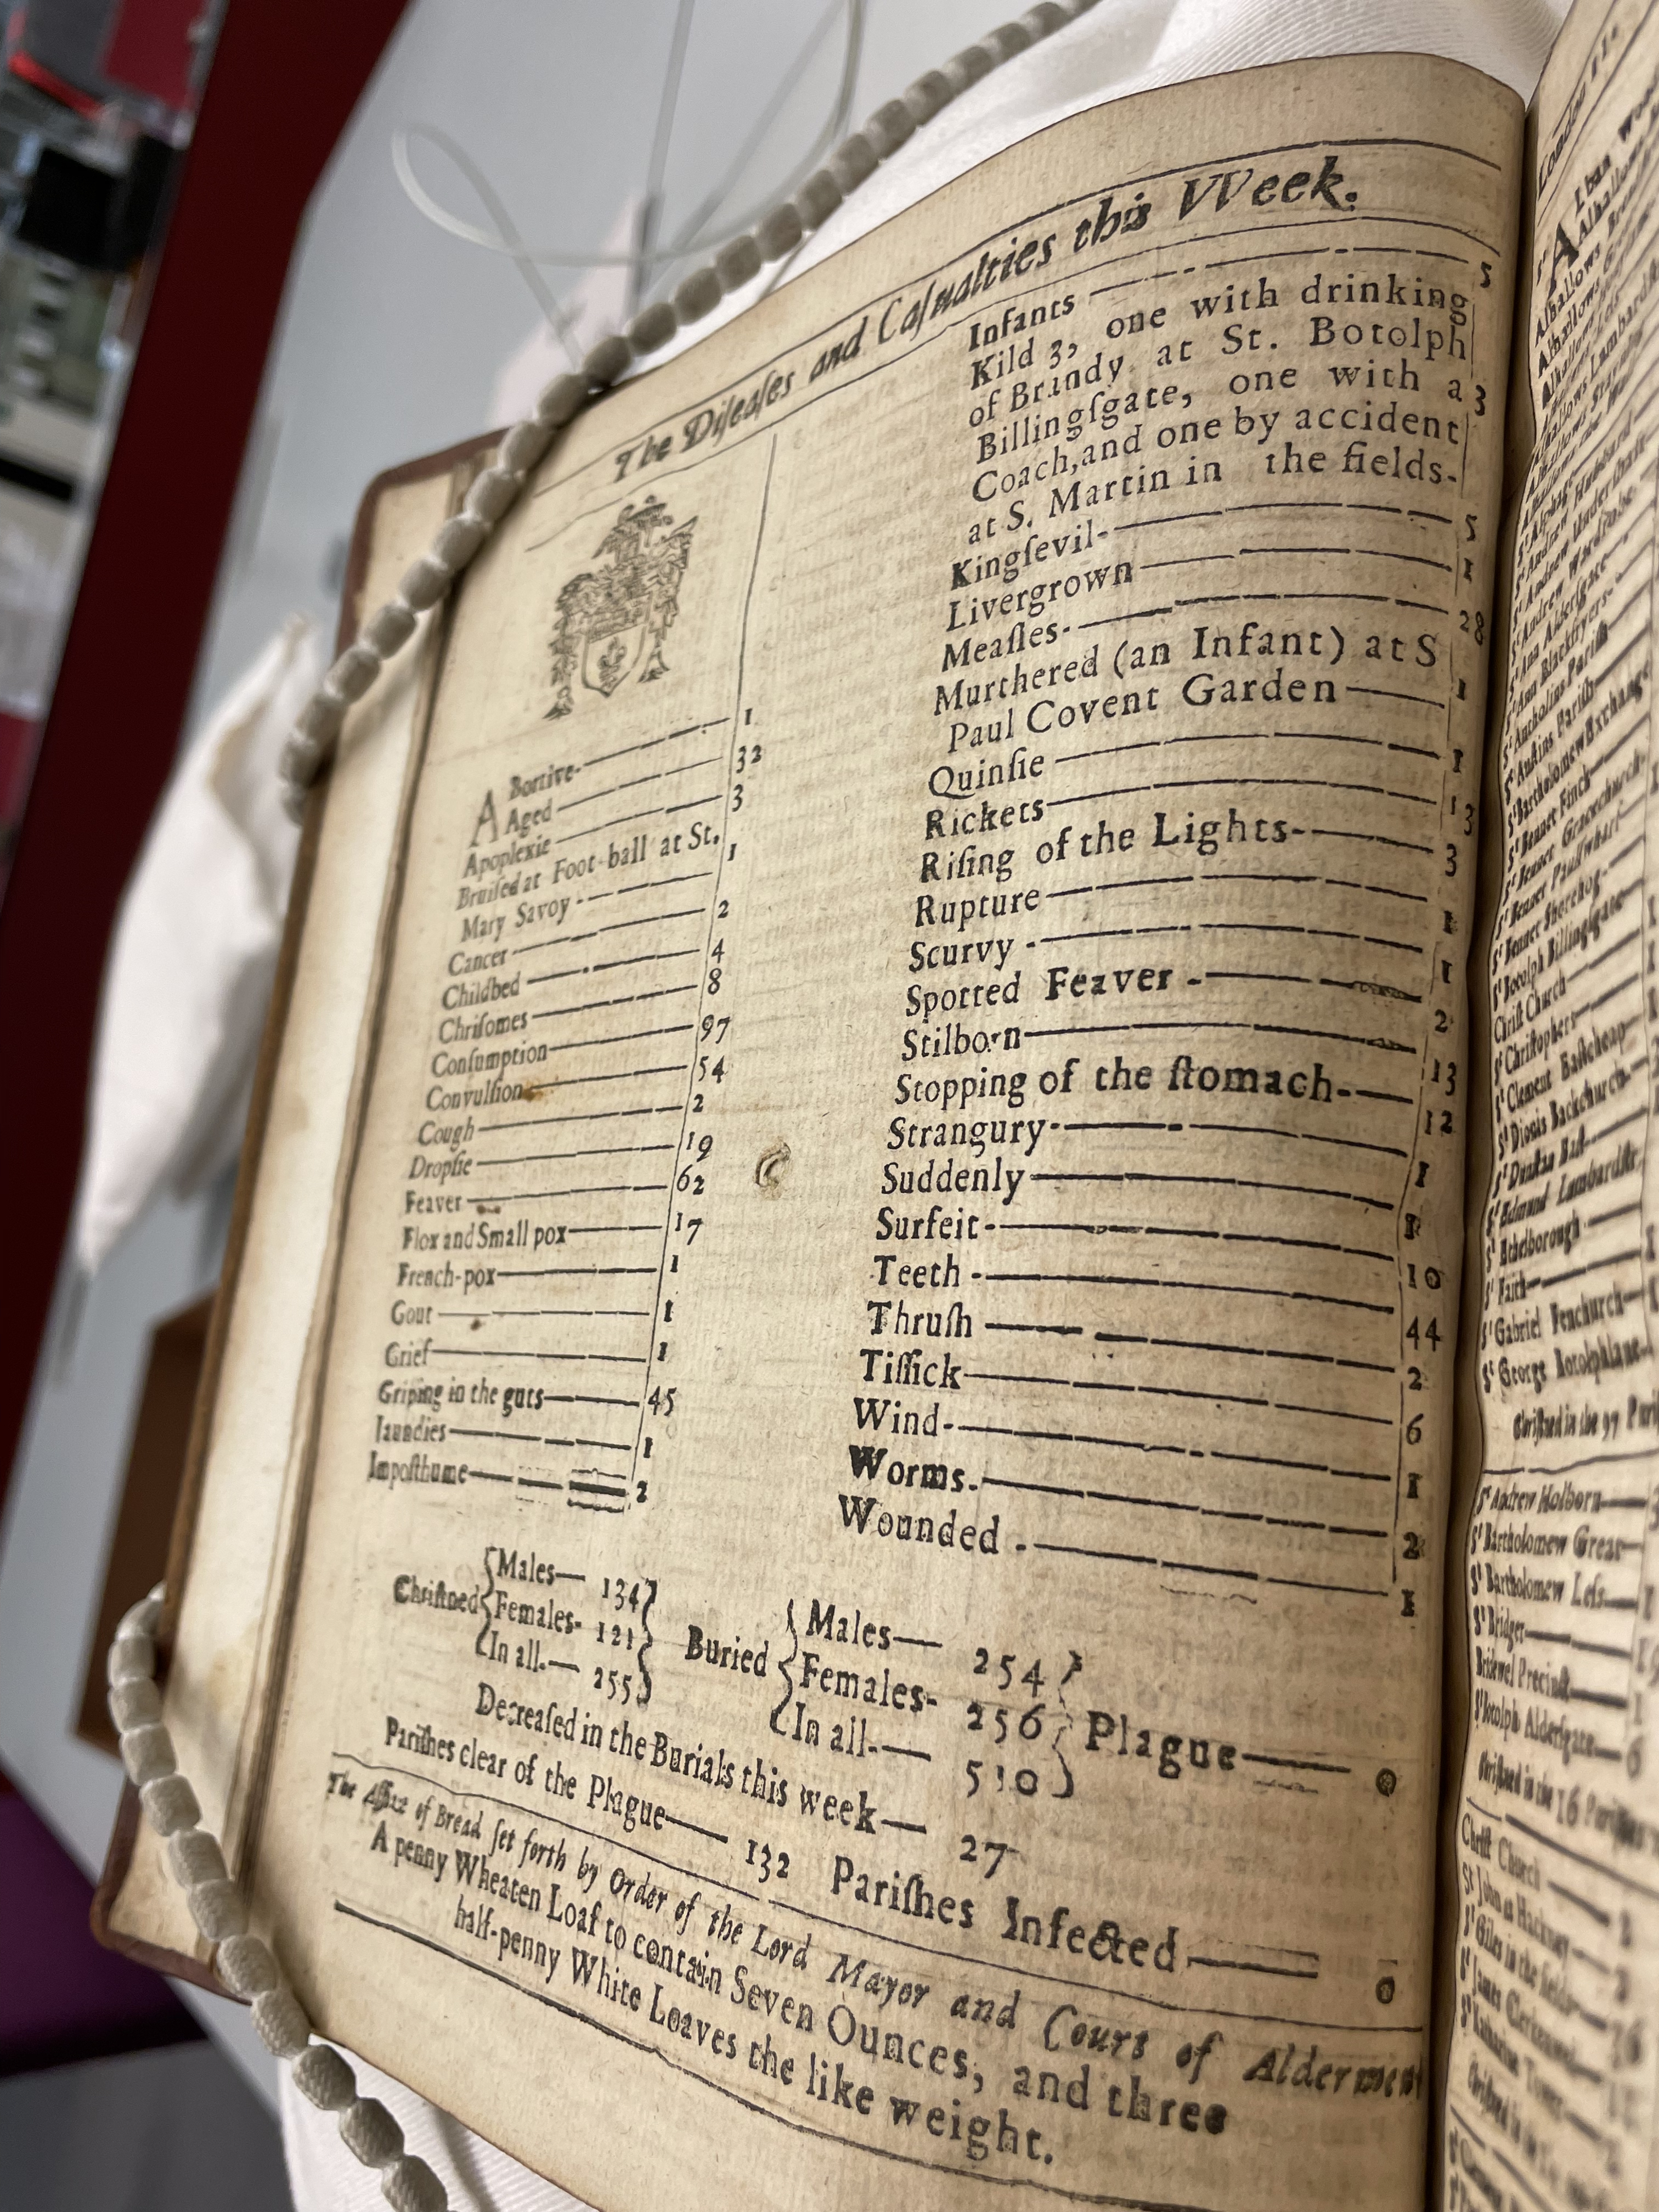 The Diſeaſes and Caſualties this VVeek.
ABortive- 1
Aged 32
Apoplexie 3
Bruiſed at Foot-ball at St.
Mary Savoy - 1
Cancer 2
Childbed 4
Chriſomes 8
Conſumption 97
Convulſion 54
Cough 2
Dropſie 19
Feaver 62
Flox and Small pox 17
French-pox 1
Gout 1
Grief 1
Griping in the guts 45
Jaundies 1
Impoſthume 2
Infants 5
Kild 3, one with drinking
of Brandy at St. Botolph
Billingſgate, one with a
Coach, and one by accident
at S. Martin in the fields- 3
Kingſevil- 5
Livergrown 1
Meaſles- 28
Murthered (an Infant) at S
Paul Covent Garden 1
Quinſie 1
Rickets 13
Riſing of the Lights- 3
Rupture 1
Scurvy - 1
Spotted Feaver - 2
Stilborn 13
Stopping of the ſtomach- 12
Strangury- 1
Suddenly 1
Surfeit- 10
Teeth - 44
Thruſh 2
Tiſſick 6
Wind- 1
Worms. 2
Wounded - 1
Chriſtned { Males— 134 Females- 121 In all.— 255 }
Buried { Males— 254 Females- 256 In all.— 510 } Plague— 0
Decreaſed in the Burials this week— 27
Pariſhes clear of the Plague— 132 Pariſhes Infected— 0
The Aſſize of Bread ſet forth by Order of the Lord Mayor and Court of Aldermen
A penny Wheaten Loaf to contain Seven Ounces, and three
half-penny White Loaves the like weight.
London
St Alban
Alhallows
Alhallows
Alhallows
Alhallows Lumbard
St Bartholomew Exchange
St Bennet Finch
St Botolph Billingſgate
Chriſt Church
St Chriſtophers
St Clement Eaſtcheap
St Dionis Backchurch
St Edmund Lumbardſtr.
St Ethelborough
St Faith
St Gabriel Fenchurch
St George Botolphlane
Chriſtned in the 97 Pari
St Andrew Holborn
St Bartholomew Great
St Bartholomew Leſs
St Bridget
Bridewel Precinct
St Botolph Alderſgate 6
Chriſtned in the 16 Pariſhes
Chriſt Church
St John at Hackney
St Giles in the fields
St James Clerkenwel
St Katharine Tower